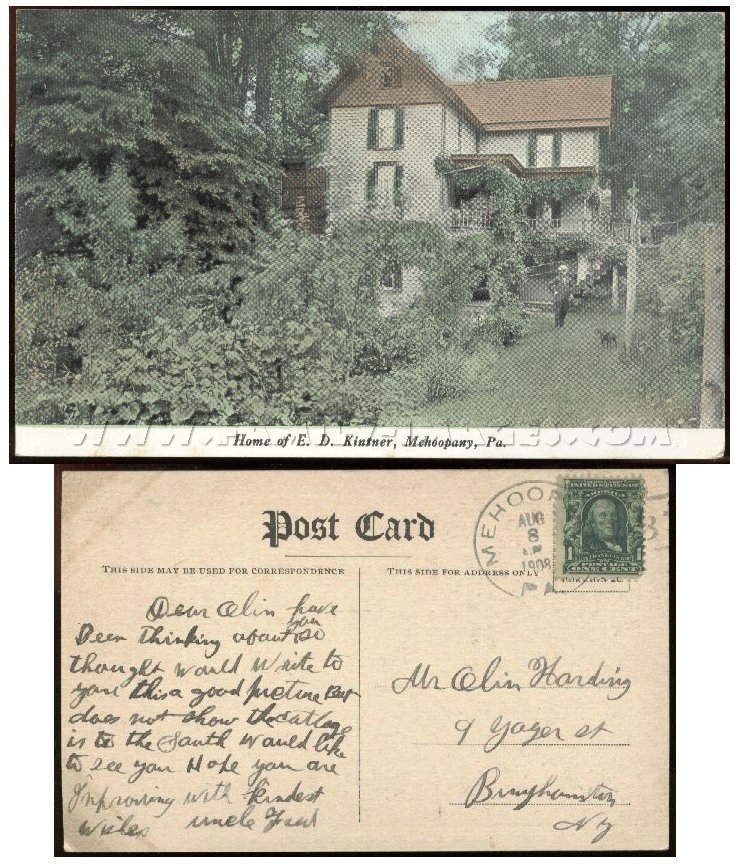 Home of E. D. Kintner, Mehoopany, Pa.
Post Card
THIS SIDE MAY BE USED FOR CORRESPONDENCE
THIS SIDE FOR ADDRESS ONLY
MEHOOPA
AUG
8
1908
PA.
UNITED STATES OF
AMERICA
FRANKLIN
POSTAGE
ONE CENT
FOREIGN 2c
Dear Olin have
you
Been thinking about so
thought would write to
you this a good picture But
does not show the cottage
is to the South would like
to see you Hope you are
Improving with kindest
wishes uncle Fred
Mr Olin Harding
9 Yager st
Binghamton
NY